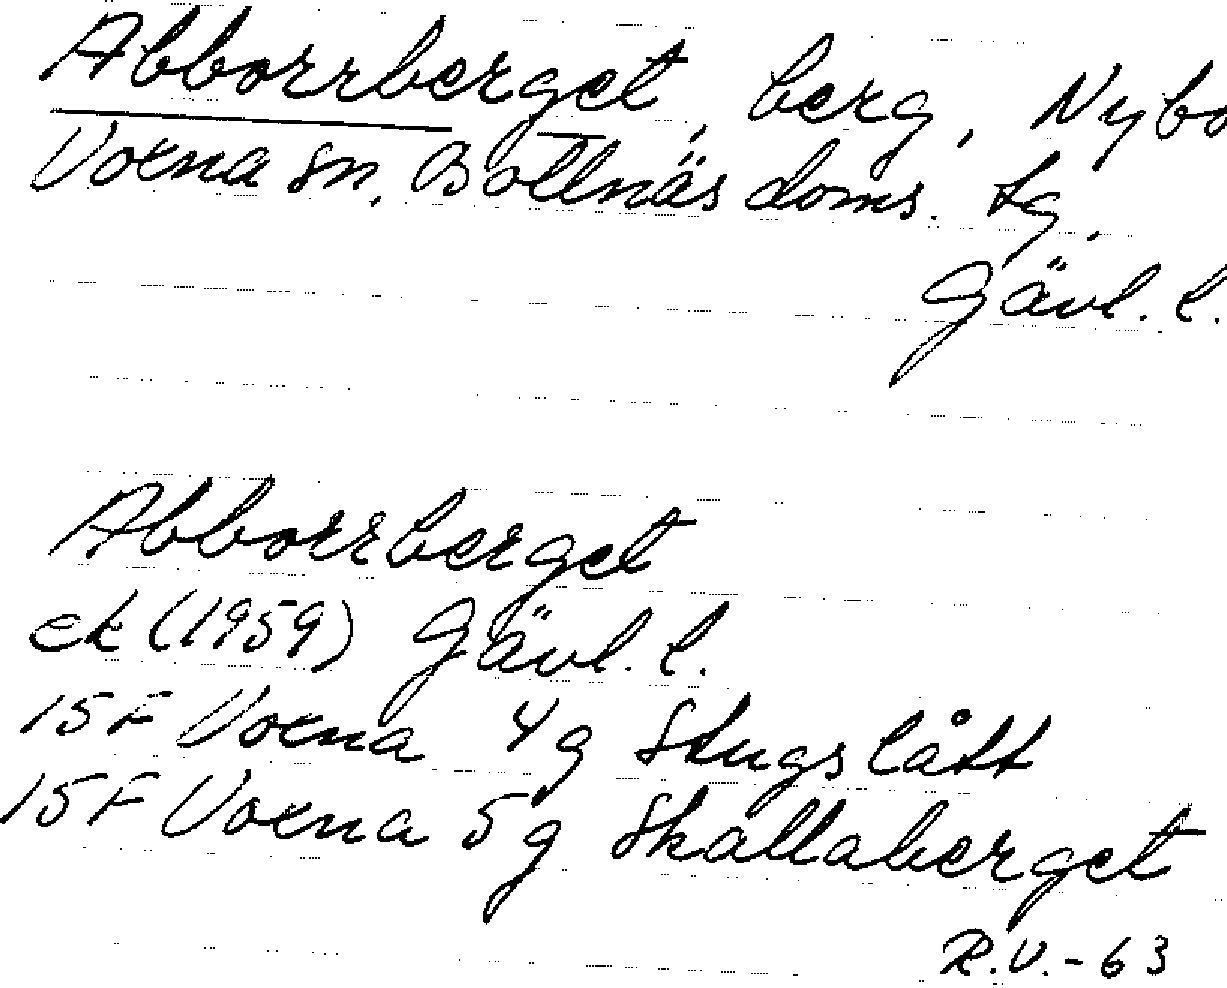 Abborrberget, berg, Nybo
Voxna sn. Bollnäs doms. tg.
Gävl. l.
Abborrberget
ek (1959) Gävl. l.
15F Voxna 4g Stugslått
15F Voxna 5g Skallaberget
R.V.-63